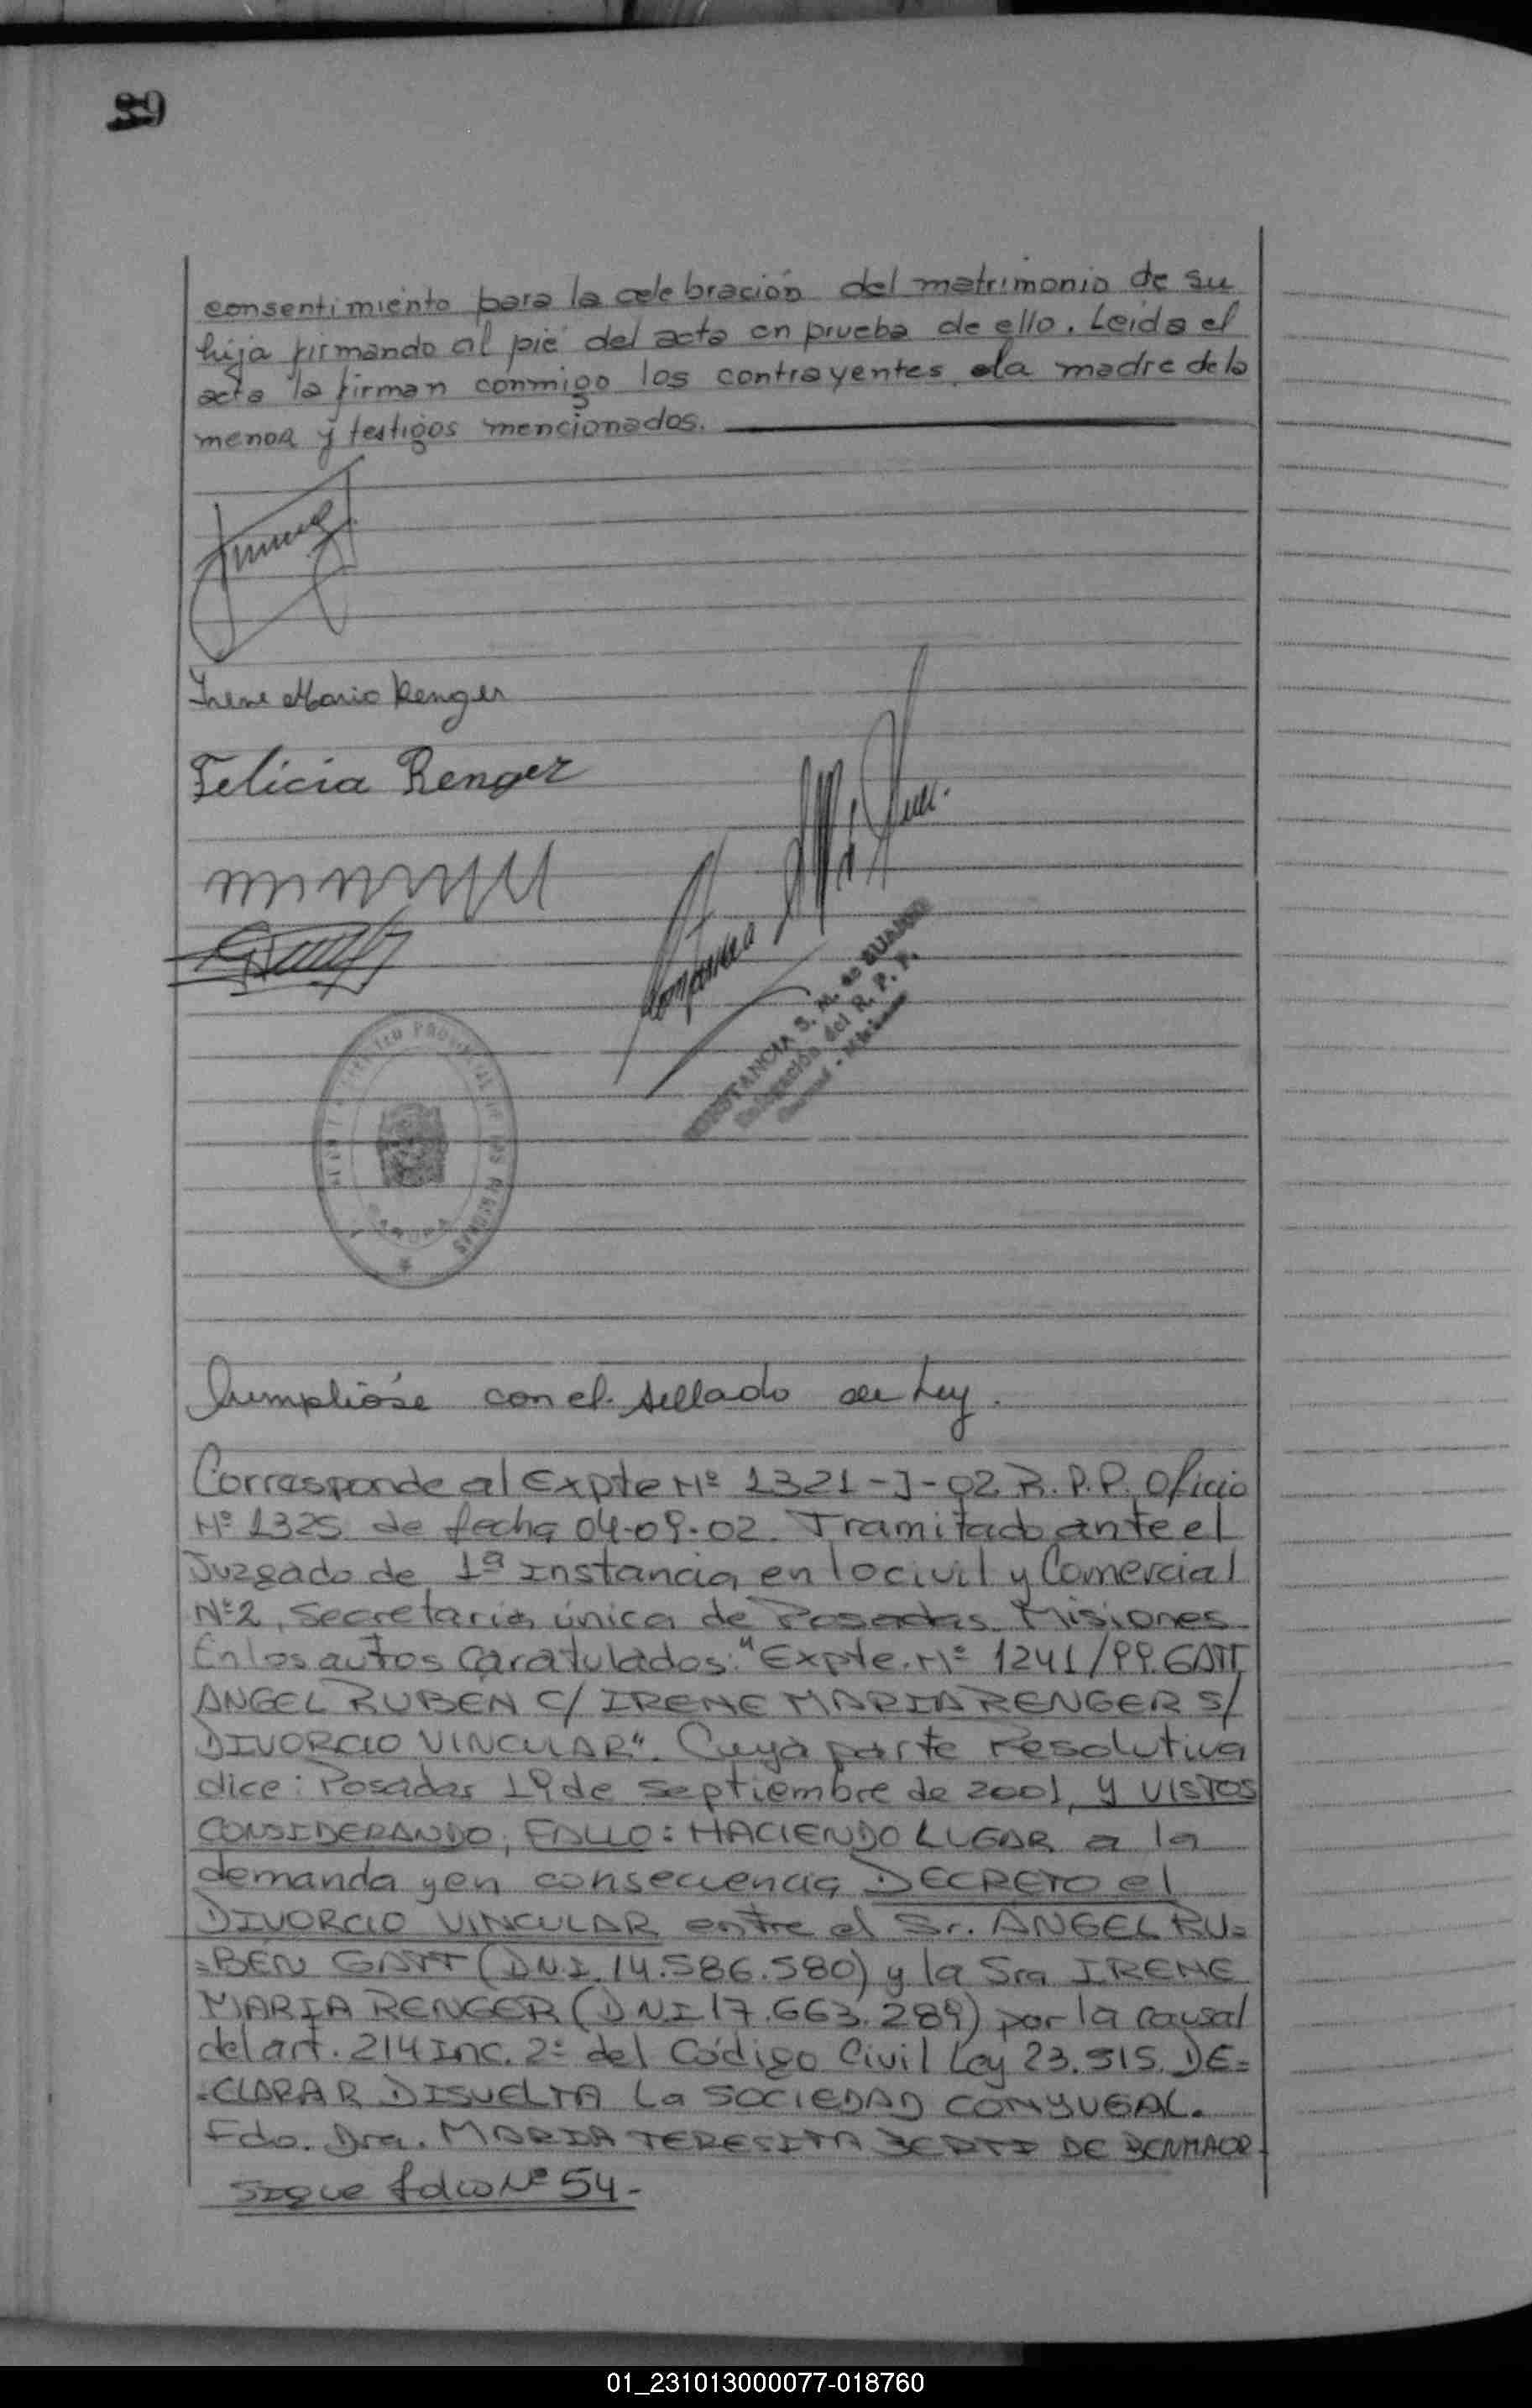 39
consentimiento para la celebración del matrimonio de su
hija firmando al pié del acta en prueba de ello. Leida el
acta la firman conmigo los contrayentes, la madre de la
menor y testigos mencionados.
Irene Maria Renger
Felicia Renger
CONSTANCIA S. M. de
Delegación del R. P. P.
Misiones
PROVINCIAL DE LAS PERSONAS
Cumplióse con el sellado de Ley.
Corresponde al Expte Nº 1321-J-02 R.P.P. Oficio
Nº 1325 de fecha 04-09-02. Tramitado ante el
Juzgado de 1ª Instancia en lo civil y Comercial
Nº2, Secretaria única de Posadas Misiones
En los autos Caratulados: "Expte. Nº 1241/99. GATT
ANGEL RUBEN C/ IRENE MARIA RENGER S/
DIVORCIO VINCULAR". Cuya parte resolutiva
dice: Posadas 19 de septiembre de 2001, y VISTOS
CONSIDERANDO, FALLO: HACIENDO LUGAR a la
demanda y en consecuencia DECRETO el
DIVORCIO VINCULAR entre el Sr. ANGEL RU=
=BEN GATT (D.N.I. 14.586.580) y la Sra IRENE
MARIA RENGER (DNI 17.663.289) por la causal
del art. 214 Inc. 2º del Código Civil Ley 23.515. DE=
=CLARAR DISUELTA La SOCIEDAD CONYUGAL.
Fdo. Dra. MARIA TERESITA BERTI DE BENMAOR
Sigue folio Nº 54-
01_231013000077-018760